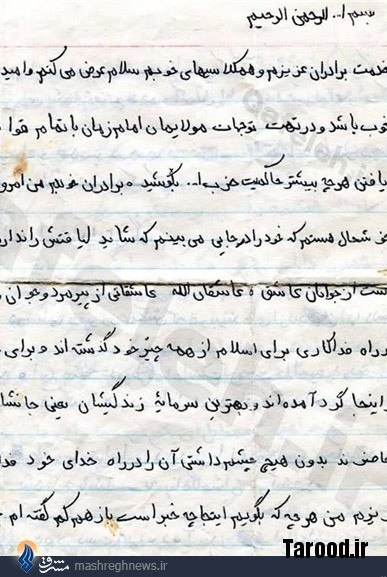 بسم ا... الرحمن الرحیم
خدمت برادران عزیزم و همکلاسیهای خوبم سلام عرض می کنم و امید
خوب باشد و در تحت توجهات مولایمان امام زمان با تمام قوا
یافتن هر چه بیشتر حاکمیت حزب ا... بکوشید ه برادران خوبم من امرو
خوشحال هستم که خود را در جایی می بینم که شاید لیاقتش را ندار
است از جوانان عاشق ه عاشقان الله عاشقانی از پیرمرد و جوان
در راه فداکاری برای اسلام از همه چیز خود گذشته اند و برای
اینجا گرد آمده اند و بهترین سرمایهٔ زندگیشان یعنی جانشا
حاضرند بدون هیچ چشم داشتی آن را در راه خدای خود فدا
عزیزم من هر چه که بگویم اینجا چه خبر است باز هم کم گفته ام
Tarood.ir
مشرق
mashreghnews.ir